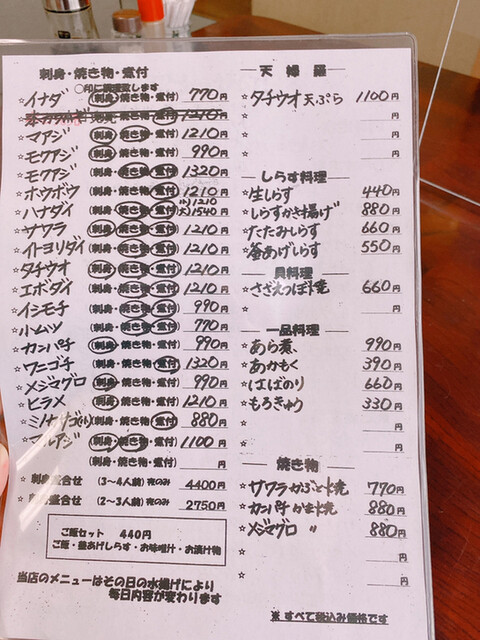 刺身・焼き物・煮付
○印に調理致します
☆イナダ (刺身・焼き物・煮付) 770円
1210円
☆マアジ (刺身・焼き物・煮付) 1210円
☆モクアジ (刺身・焼き物・煮付) 990円
☆モクアジ (刺身・焼き物・煮付) 1320円
☆ホウボウ (刺身・焼き物・煮付) 1210円
☆ハナダイ (刺身・焼き物・煮付) 小)1210 大)1540円
☆サワラ (刺身・焼き物・煮付) 1210円
☆イトヨリダイ (刺身・焼き物・煮付) 1210円
☆タチウオ (刺身・焼き物・煮付) 1210円
☆エボダイ (刺身・焼き物・煮付) 1210円
☆イシモチ (刺身・焼き物・煮付) 990円
☆小ムツ (刺身・焼き物・煮付) 770円
☆カンパチ (刺身・焼き物・煮付) 990円
☆ワニゴチ (刺身・焼き物・煮付) 1320円
☆メジマグロ (刺身・焼き物・煮付) 990円
☆ヒラメ (刺身・焼き物・煮付) 1210円
☆ (刺身・焼き物・煮付) 880円
☆マルアジ (刺身・焼き物・煮付) 1100円
(刺身・焼き物・煮付) 円
☆刺身盛合せ (3〜4人前) 夜のみ 4400円
☆刺身盛合せ (2〜3人前) 夜のみ 2750円
ご飯セット 440円
ご飯・釜あげしらす・お味噌汁・お漬け物
当店のメニューはその日の水揚げにより
毎日内容が変わります
天婦羅
☆タチウオ天ぷら 1100円
☆ 円
☆ 円
しらす料理
☆生しらす 440円
☆しらすかき揚げ 880円
☆たたみしらす 660円
☆釜あげしらす 550円
貝料理
☆さざえつぼ焼 660円
☆ 円
一品料理
☆あら煮、 990円
☆あかもく 390円
☆はばのり 660円
☆もろきゅう 330円
☆ 円
☆ 円
焼き物
☆サワラかぶと焼 770円
☆カンパチかま焼 880円
☆メジマグロ 〃 880円
☆ 円
☆ 円
※すべて税込み価格です